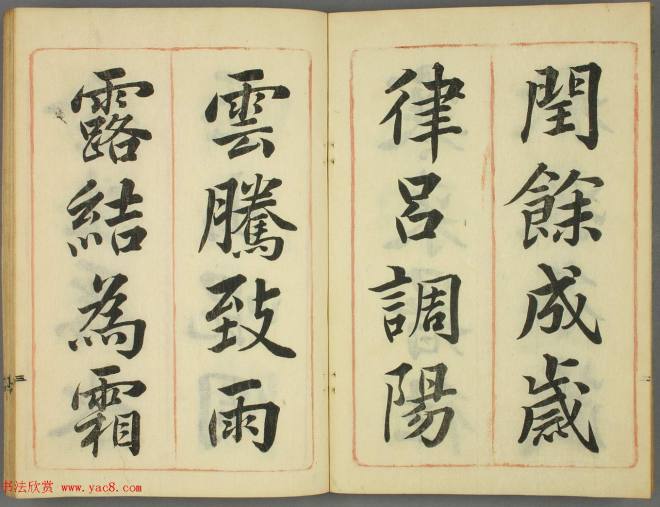 閏餘成歲
律呂調陽
雲騰致雨
露結為霜
书法欣赏 www.yac8.com